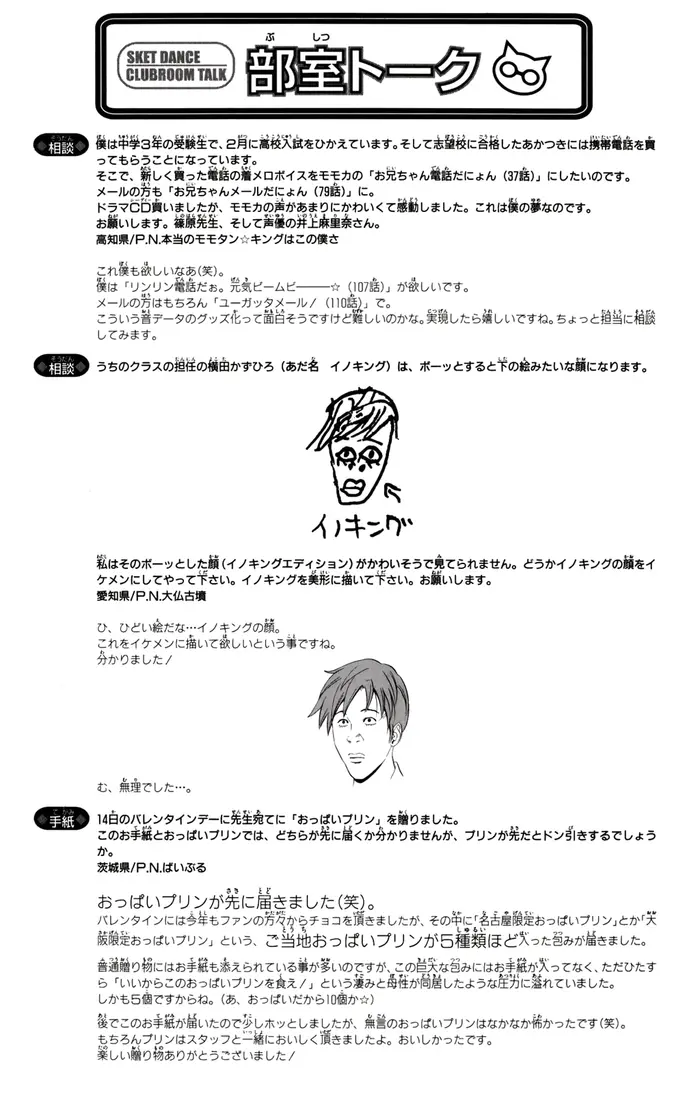 SKET DANCE
CLUBROOM TALK
部室トーク
相談
僕は中学3年の受験生で、2月に高校入試をひかえています。そして志望校に合格したあかつきには携帯電話を買
ってもらうことになっています。
そこで、新しく買った電話の着メロボイスをモモカの「お兄ちゃん電話だにょん（37話）」にしたいのです。
メールの方も「お兄ちゃんメールだにょん（79話）」に。
ドラマCD買いましたが、モモカの声があまりにかわいくて感動しました。これは僕の夢なのです。
お願いします。篠原先生、そして声優の井上麻里奈さん。
高知県/P.N.本当のモモタン☆キングはこの僕さ
これ僕も欲しいなあ(笑)。
僕は「リンリン電話だぉ。元気ビームビー―――☆（107話）」が欲しいです。
メールの方はもちろん「ユーガッタメール！（110話）」で。
こういう音データのグッズ化って面白そうですけど難しいのかな。実現したら嬉しいですね。ちょっと担当に相談
してみます。
相談
うちのクラスの担任の横田かずひろ（あだ名　イノキング）は、ボーッとすると下の絵みたいな顔になります。
イノキング
私はそのボーッとした顔（イノキングエディション）がかわいそうで見てられません。どうかイノキングの顔をイ
ケメンにしてやって下さい。イノキングを美形に描いて下さい。お願いします。
愛知県/P.N.大仏古墳
ひ、ひどい絵だな…イノキングの顔。
これをイケメンに描いて欲しいという事ですね。
分かりました！
む、無理でした…。
手紙
14日のバレンタインデーに先生宛てに「おっぱいプリン」を贈りました。
このお手紙とおっぱいプリンでは、どちらが先に届くか分かりませんが、プリンが先だとドン引きするでしょう
か。
茨城県/P.N.ばいぶる
おっぱいプリンが先に届きました(笑)。
バレンタインには今年もファンの方々からチョコを頂きましたが、その中に「名古屋限定おっぱいプリン」とか「大
阪限定おっぱいプリン」という、ご当地おっぱいプリンが5種類ほど入った包みが届きました。
普通贈り物にはお手紙も添えられている事が多いのですが、この巨大な包みにはお手紙が入ってなく、ただひたす
ら「いいからこのおっぱいプリンを食え！」という凄みと母性が同居したような圧力に溢れていました。
しかも5個ですからね。（あ、おっぱいだから10個か☆）
後でこのお手紙が届いたので少しホッとしましたが、無言のおっぱいプリンはなかなか怖かったです(笑)。
もちろんプリンはスタッフと一緒においしく頂きましたよ。おいしかったです。
楽しい贈り物ありがとうございました！